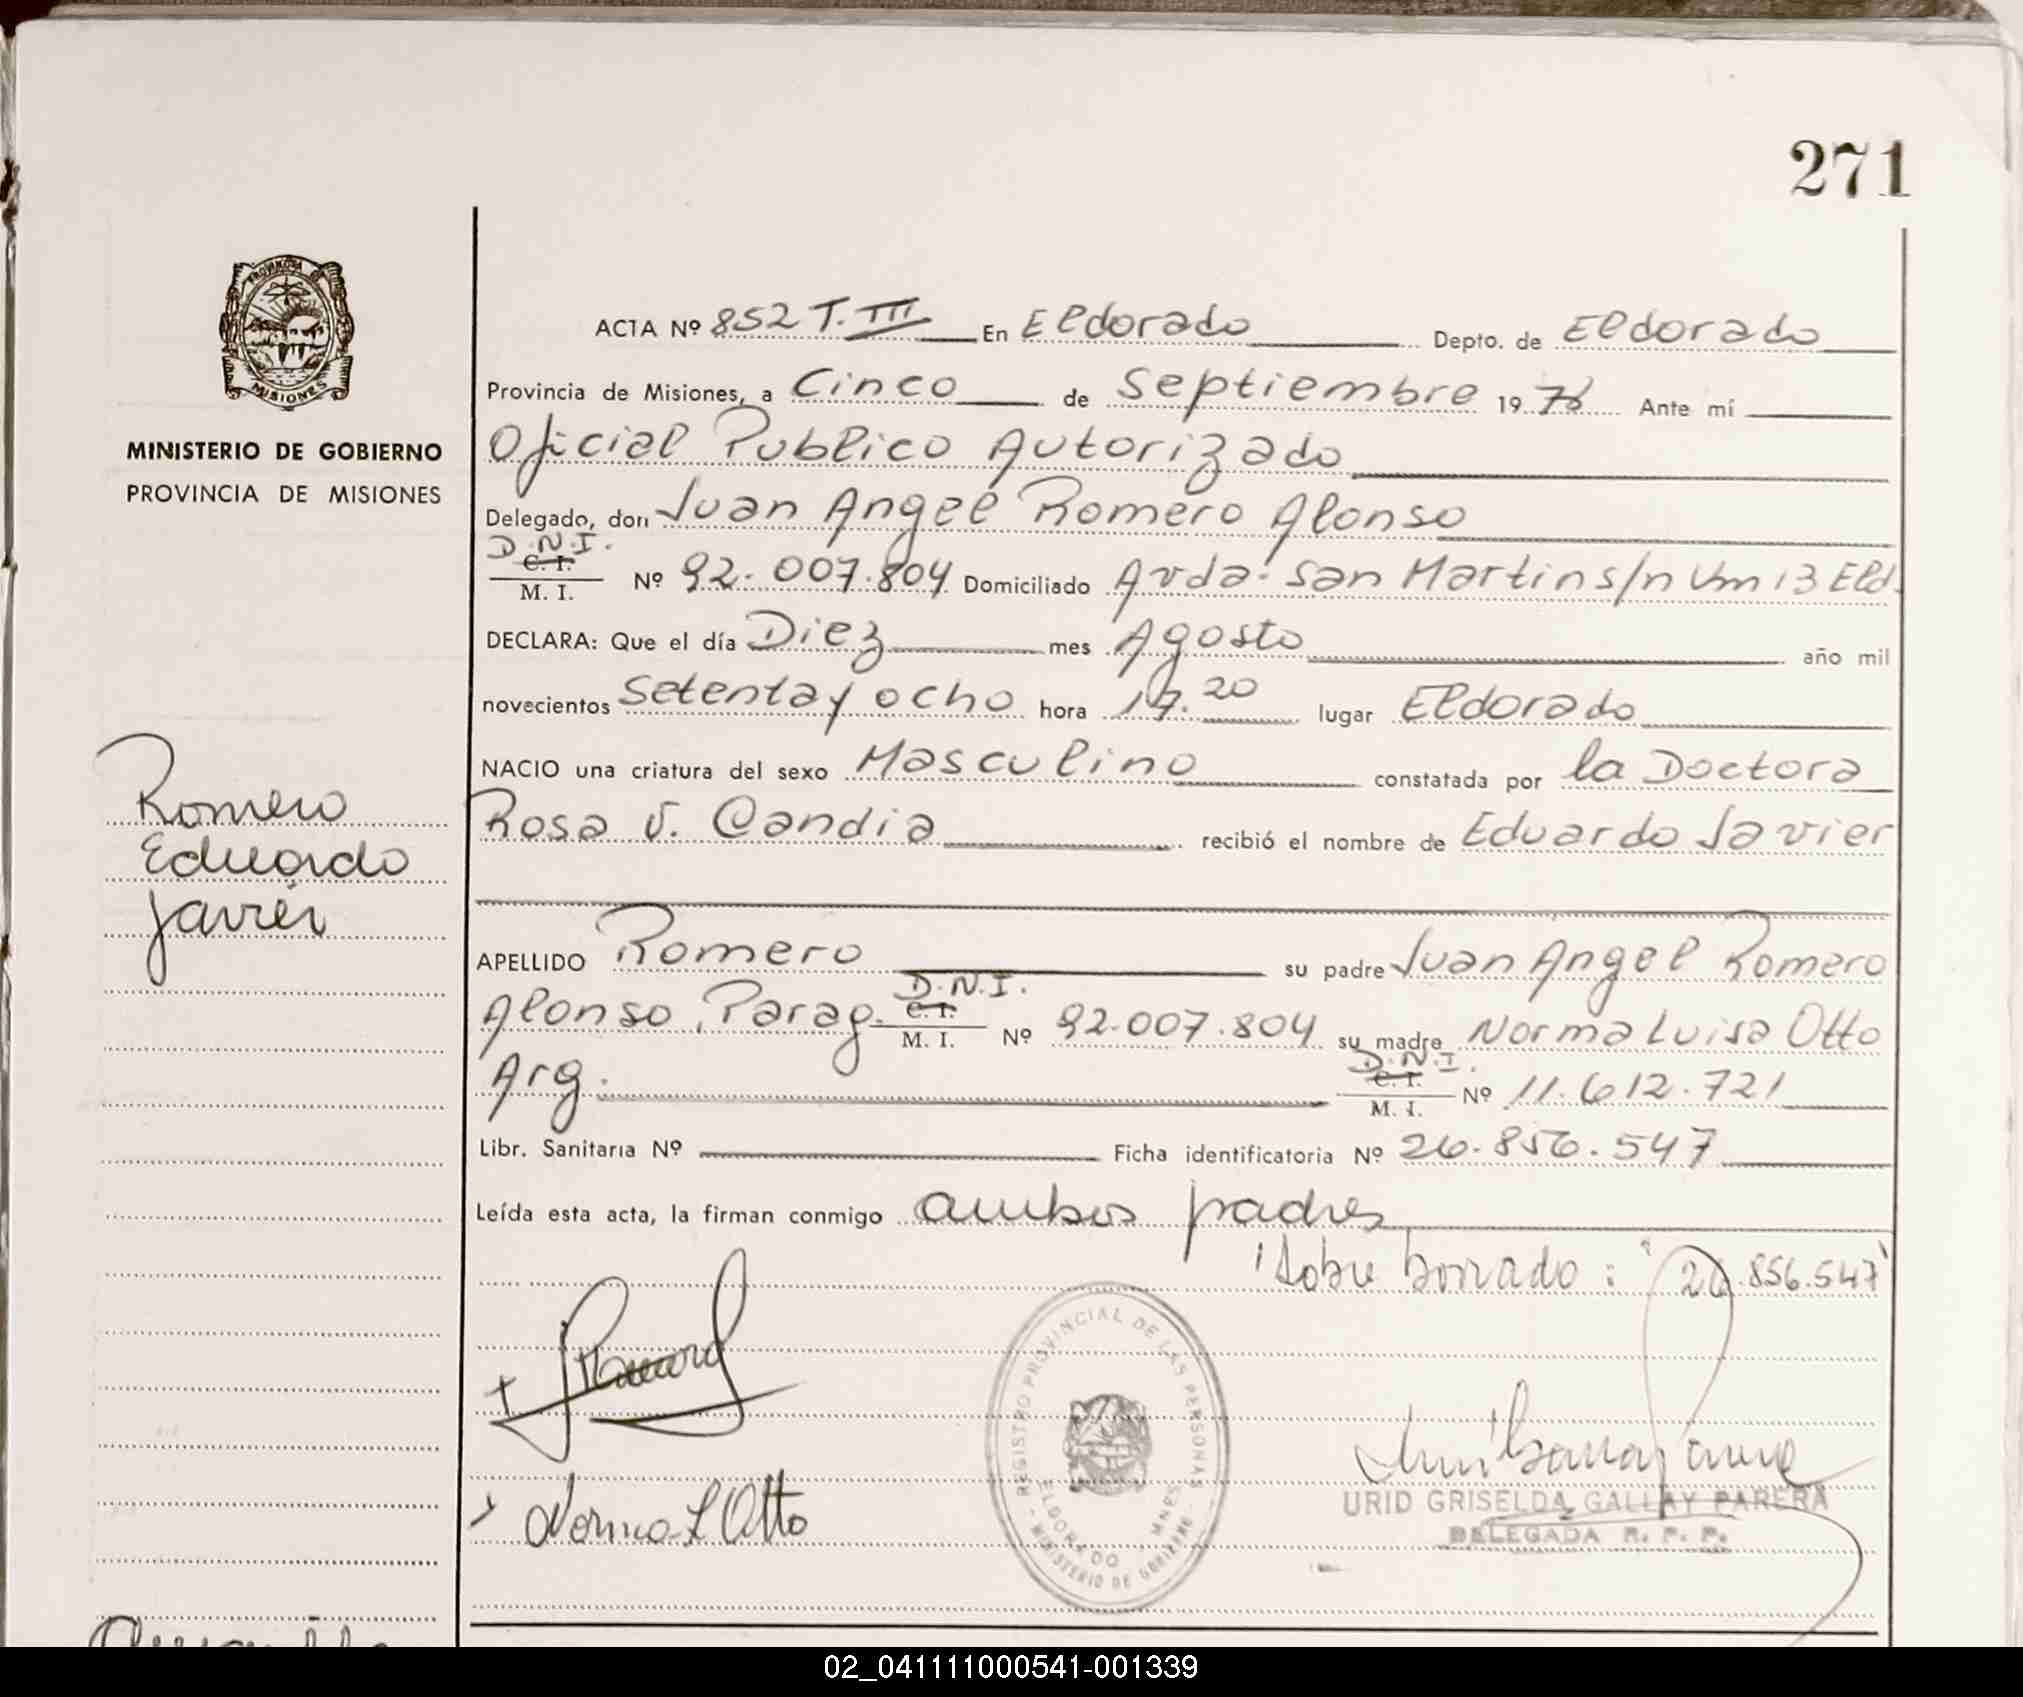 271
ACTA Nº 852 T. III En Eldorado Depto. de Eldorado
Provincia de Misiones, a Cinco de Septiembre 1978 Ante mí
MINISTERIO DE GOBIERNO
PROVINCIA DE MISIONES
Oficial Publico Autorizado
Delegado, don Juan Angel Romero Alonso
D.N.I.
C. I.
M. I. Nº 92.007.804 Domiciliado Avda. San Martin s/n Km 13 Eld.
DECLARA: Que el día Diez mes Agosto año mil
novecientos Setenta y ocho hora 17.20 lugar Eldorado
NACIO una criatura del sexo Masculino constatada por la Doctora
Rosa V. Candia recibió el nombre de Eduardo Javier
Romero
Eduardo
Javier
APELLIDO Romero su padre Juan Angel Romero
Alonso, Parag. D.N.I. C. I. M. I. Nº 92.007.804 su madre Norma Luisa Otto
Arg. D.N.I. C. I. M. I. Nº 11.612.721
Libr. Sanitaria Nº Ficha identificatoria Nº 26.856.547
Leída esta acta, la firman conmigo ambos padres
Sobre borrado: "26.856.547"
Norma L Otto
REGISTRO PROVINCIAL DE LAS PERSONAS
ELDORADO - MNES
MINISTERIO DE GOBIERNO
URID GRISELDA GALLAY PARERA
DELEGADA R. P. P.
02_041111000541-001339